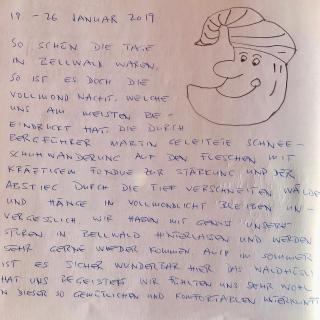 19 - 26 JANUAR 2019
SO SCHÖN DIE TAGE
IN BELLWALD WAREN,
SO IST ES DOCH DIE
VOLLMOND NACHT, WELCHE
UNS AM MEISTEN BE-
EINDRUCKT HAT. DIE DURCH
BERGFÜHRER MARTIN GELEITETE SCHNEE-
SCHUHWANDERUNG AUF DEN FLESCHEN MIT
KRÄFTIGEM FONDUE ZUR STÄRKUNG UND DER
ABSTIEG DURCH DIE TIEF VERSCHNEITEN WÄLDER
UND HÄNGE IM VOLLMONDLICHT BLEIBEN UN-
VERGESSLICH. WIR HABEN MIT GENUSS UNSERE
SPUREN IN BELLWALD HINTERLASSEN UND WERDEN
SEHR GERNE WIEDER KOMMEN AUCH IM SOMMER
IST ES SICHER WUNDERBAR HIER. DAS WALDHÜSLI
HAT UNS BEGEISTERT. WIR FÜHLTEN UNS SEHR WOHL
IN DIESER SO GEMÜTLICHEN UND KOMFORTABLEN UNTERKUNFT